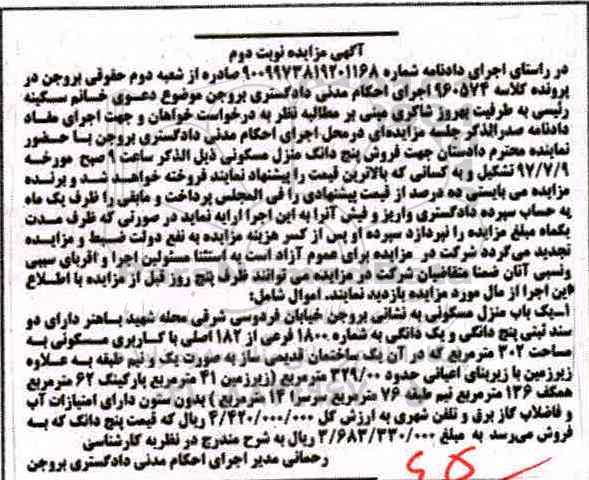 آگهی مزایده نوبت دوم
در راستای اجرای دادنامه شماره ۹۰۰۹۹۷۳۸۱۹۲۰۱۱۶۸ صادره از شعبه دوم حقوقی بروجن در
پرونده کلاسه ۹۶۰۵۷۴ اجرای احکام مدنی دادگستری بروجن موضوع دعوی خانم سکینه
رئیسی به طرفیت بهروز شاکری مبنی بر مطالبه نظر به درخواست خواهان و جهت اجرای مفاد
دادنامه صدرالذکر جلسه مزایده‌ای درمحل اجرای احکام مدنی دادگستری بروجن با حضور
نماینده محترم دادستان جهت فروش پنج دانگ منزل مسکونی ذیل الذکر ساعت ۹ صبح مورخه
۹۷/۷/۹ تشکیل و به کسانی که بالاترین قیمت را پیشنهاد نمایند فروخته خواهد شد و برنده
مزایده می بایستی ده درصد از قیمت پیشنهادی را فی المجلس پرداخت و مابقی را ظرف یک ماه
به حساب سپرده دادگستری واریز و فیش آنرا به این اجرا ارایه نماید در صورتی که ظرف مدت
یکماه مبلغ مزایده را نپردازد سپرده او پس از کسر هزینه مزایده به نفع دولت ضبط و مزایده
تجدید می‌گردد شرکت در مزایده برای عموم آزاد است به استثنا مسئولین اجرا و اقربای سببی
ونسبی آنان ضمنا متقاضیان شرکت در مزایده می توانند ظرف پنج روز قبل از مزایده با اطلاع
این اجرا از مال مورد مزایده بازدید نمایند. اموال شامل:
۱-یک باب منزل مسکونی به نشانی بروجن خیابان فردوسی شرقی محله شهید باهنر دارای دو
سند ثبتی پنج دانگی و یک دانگی به شماره ۱۸۰۰ فرعی از ۱۸۲ اصلی با کاربری مسکونی به
مساحت ۲۰۲ مترمربع که در آن یک ساختمان قدیمی ساز به صورت یک و نیم طبقه به علاوه
زیرزمین با زیربنای اعیانی حدود ۳۲۹/۰۰ مترمربع (زیرزمین ۴۱ مترمربع پارکینگ ۶۲ مترمربع
همکف ۱۳۶ مترمربع نیم طبقه ۷۶ مترمربع سرسرا ۱۴ مترمربع ) بدون ستون دارای امتیازات آب
و فاضلاب گاز برق و تلفن شهری به ارزش کل ۴/۴۲۰/۰۰۰/۰۰۰ ریال که قیمت پنج دانگ که به
فروش می‌رسد به مبلغ ۳/۶۸۳/۳۳۰/۰۰۰ ریال به شرح مندرج در نظریه کارشناسی
رحمانی مدیر اجرای احکام مدنی دادگستری بروجن